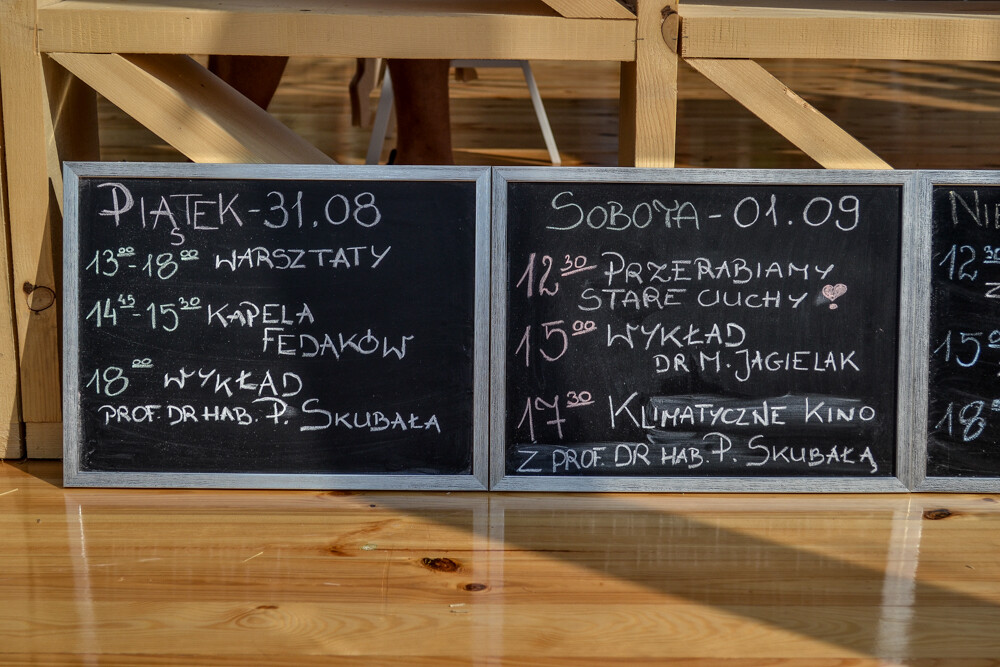 PIĄTEK - 31.08
13⁰⁰ - 18⁰⁰ WARSZTATY
14⁴⁵ - 15³⁰ KAPELA
FEDAKÓW
18⁰⁰ WYKŁAD
PROF. DR HAB. P. SKUBAŁA
SOBOTA - 01.09
12³⁰ - PRZERABIAMY
STARE CIUCHY
15⁰⁰ WYKŁAD
DR M. JAGIELAK
17³⁰ KLIMATYCZNE KINO
Z PROF. DR HAB. P. SKUBAŁĄ
12³⁰
Z
15⁰
18